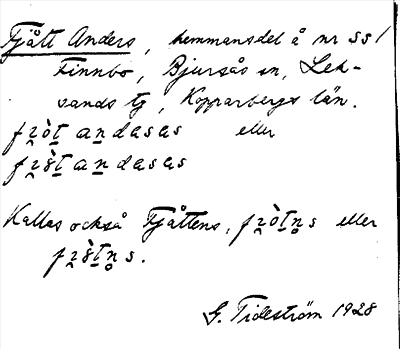 Fjått Anders, hemmansdel å nr 551
Finnbo, Bjursås sn, Lek-
sands tg, Kopparbergs län.
fʐòt andasas eller
fʐöt andasas
Kallas också Fjåttens, fʐòtns eller
fʐötns.
G. Tideström 1928